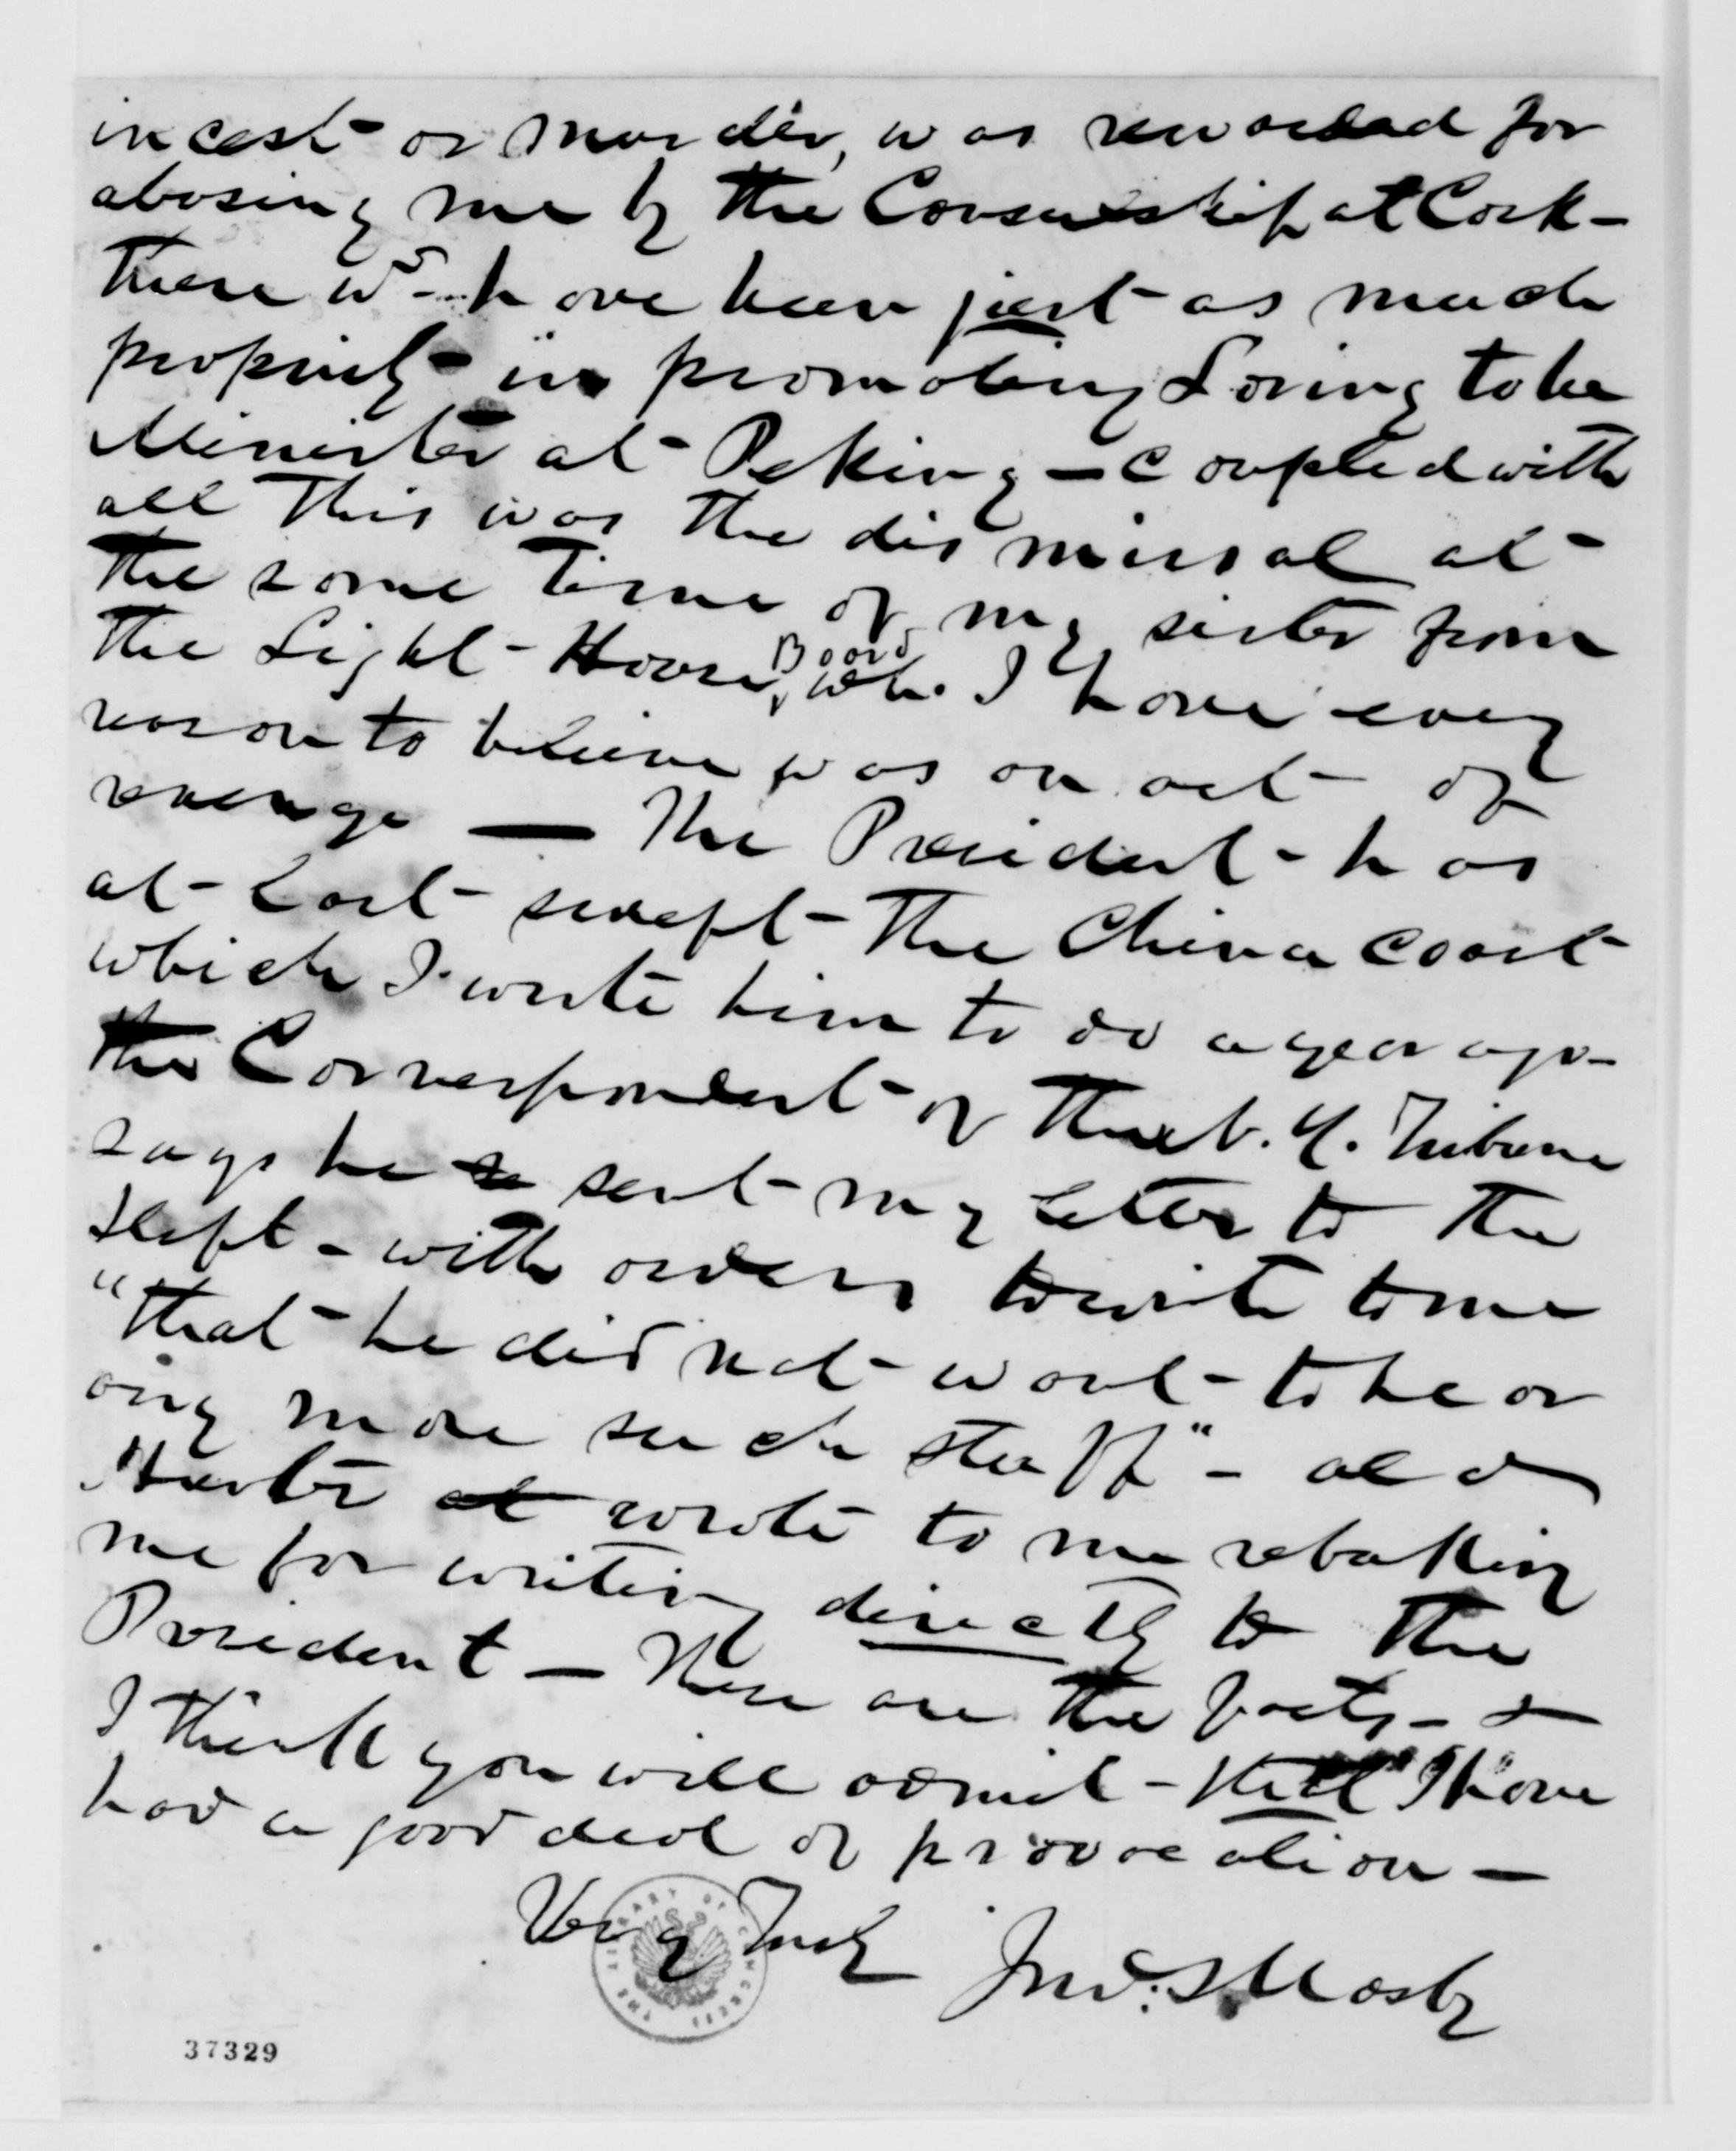 incest or murder, was rewarded for
abusing me by the Consulship at Cork –
There wd – have been just as much
propriety in promoting Loring to be
Minister at Peking – coupled with
all this was the dismissal at
the same time of my sister from
the Light-House Board, wh. I have every
reason to believe was an act of
revenge — The President has
at last swept the China coast
which I wrote him to do a year ago –
the Correspondent of the N. Y. Tribune
says he sent my letter to the
Dept – with orders to write to me
"that he did not want to hear
any more such stuff" – old
Hunter wrote to me rebuking
me for writing directly to the
President — These are the facts – &
I think you will admit – that I have
had a good deal of provocation —
Very Truly Jno. S. Mosby
THE LIBRARY OF CONGRESS
37329